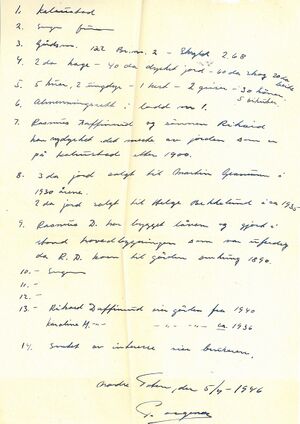 1. Kalnustad
2. Ingen
3. Gårdsnr. 122 Br.nr. 2 - Skyld 2.68
4. 2 da hage - 40 da dyrket jord - 60 da skog 20 da
5. 5 kuer, 2 ungdyr - 1 hest - 2 griser - 30 höner
6. 1.
7. Rasmus Daffinrud og sönnen Rikard
har nydyrket det meste av jorden som er
på Kalnustad etter 1900.
8. 3 da jord solgt til Martin i
1930 årene.
2 da jord solgt til Helge i ca 1935
9. Rasmus D. har bygget låven og gjord i
stand hovedbygningen som var uferdig
da R.D. kom til gården omkring 1890.
10. - Ingen
11. -
12. -
13. - Rikard Daffinrud eier gården fra 1940
Karoline H. -- - " - " - ca 1936
14. Intet av interesse sier brukeren.
Nordre den 5/4 - 1946